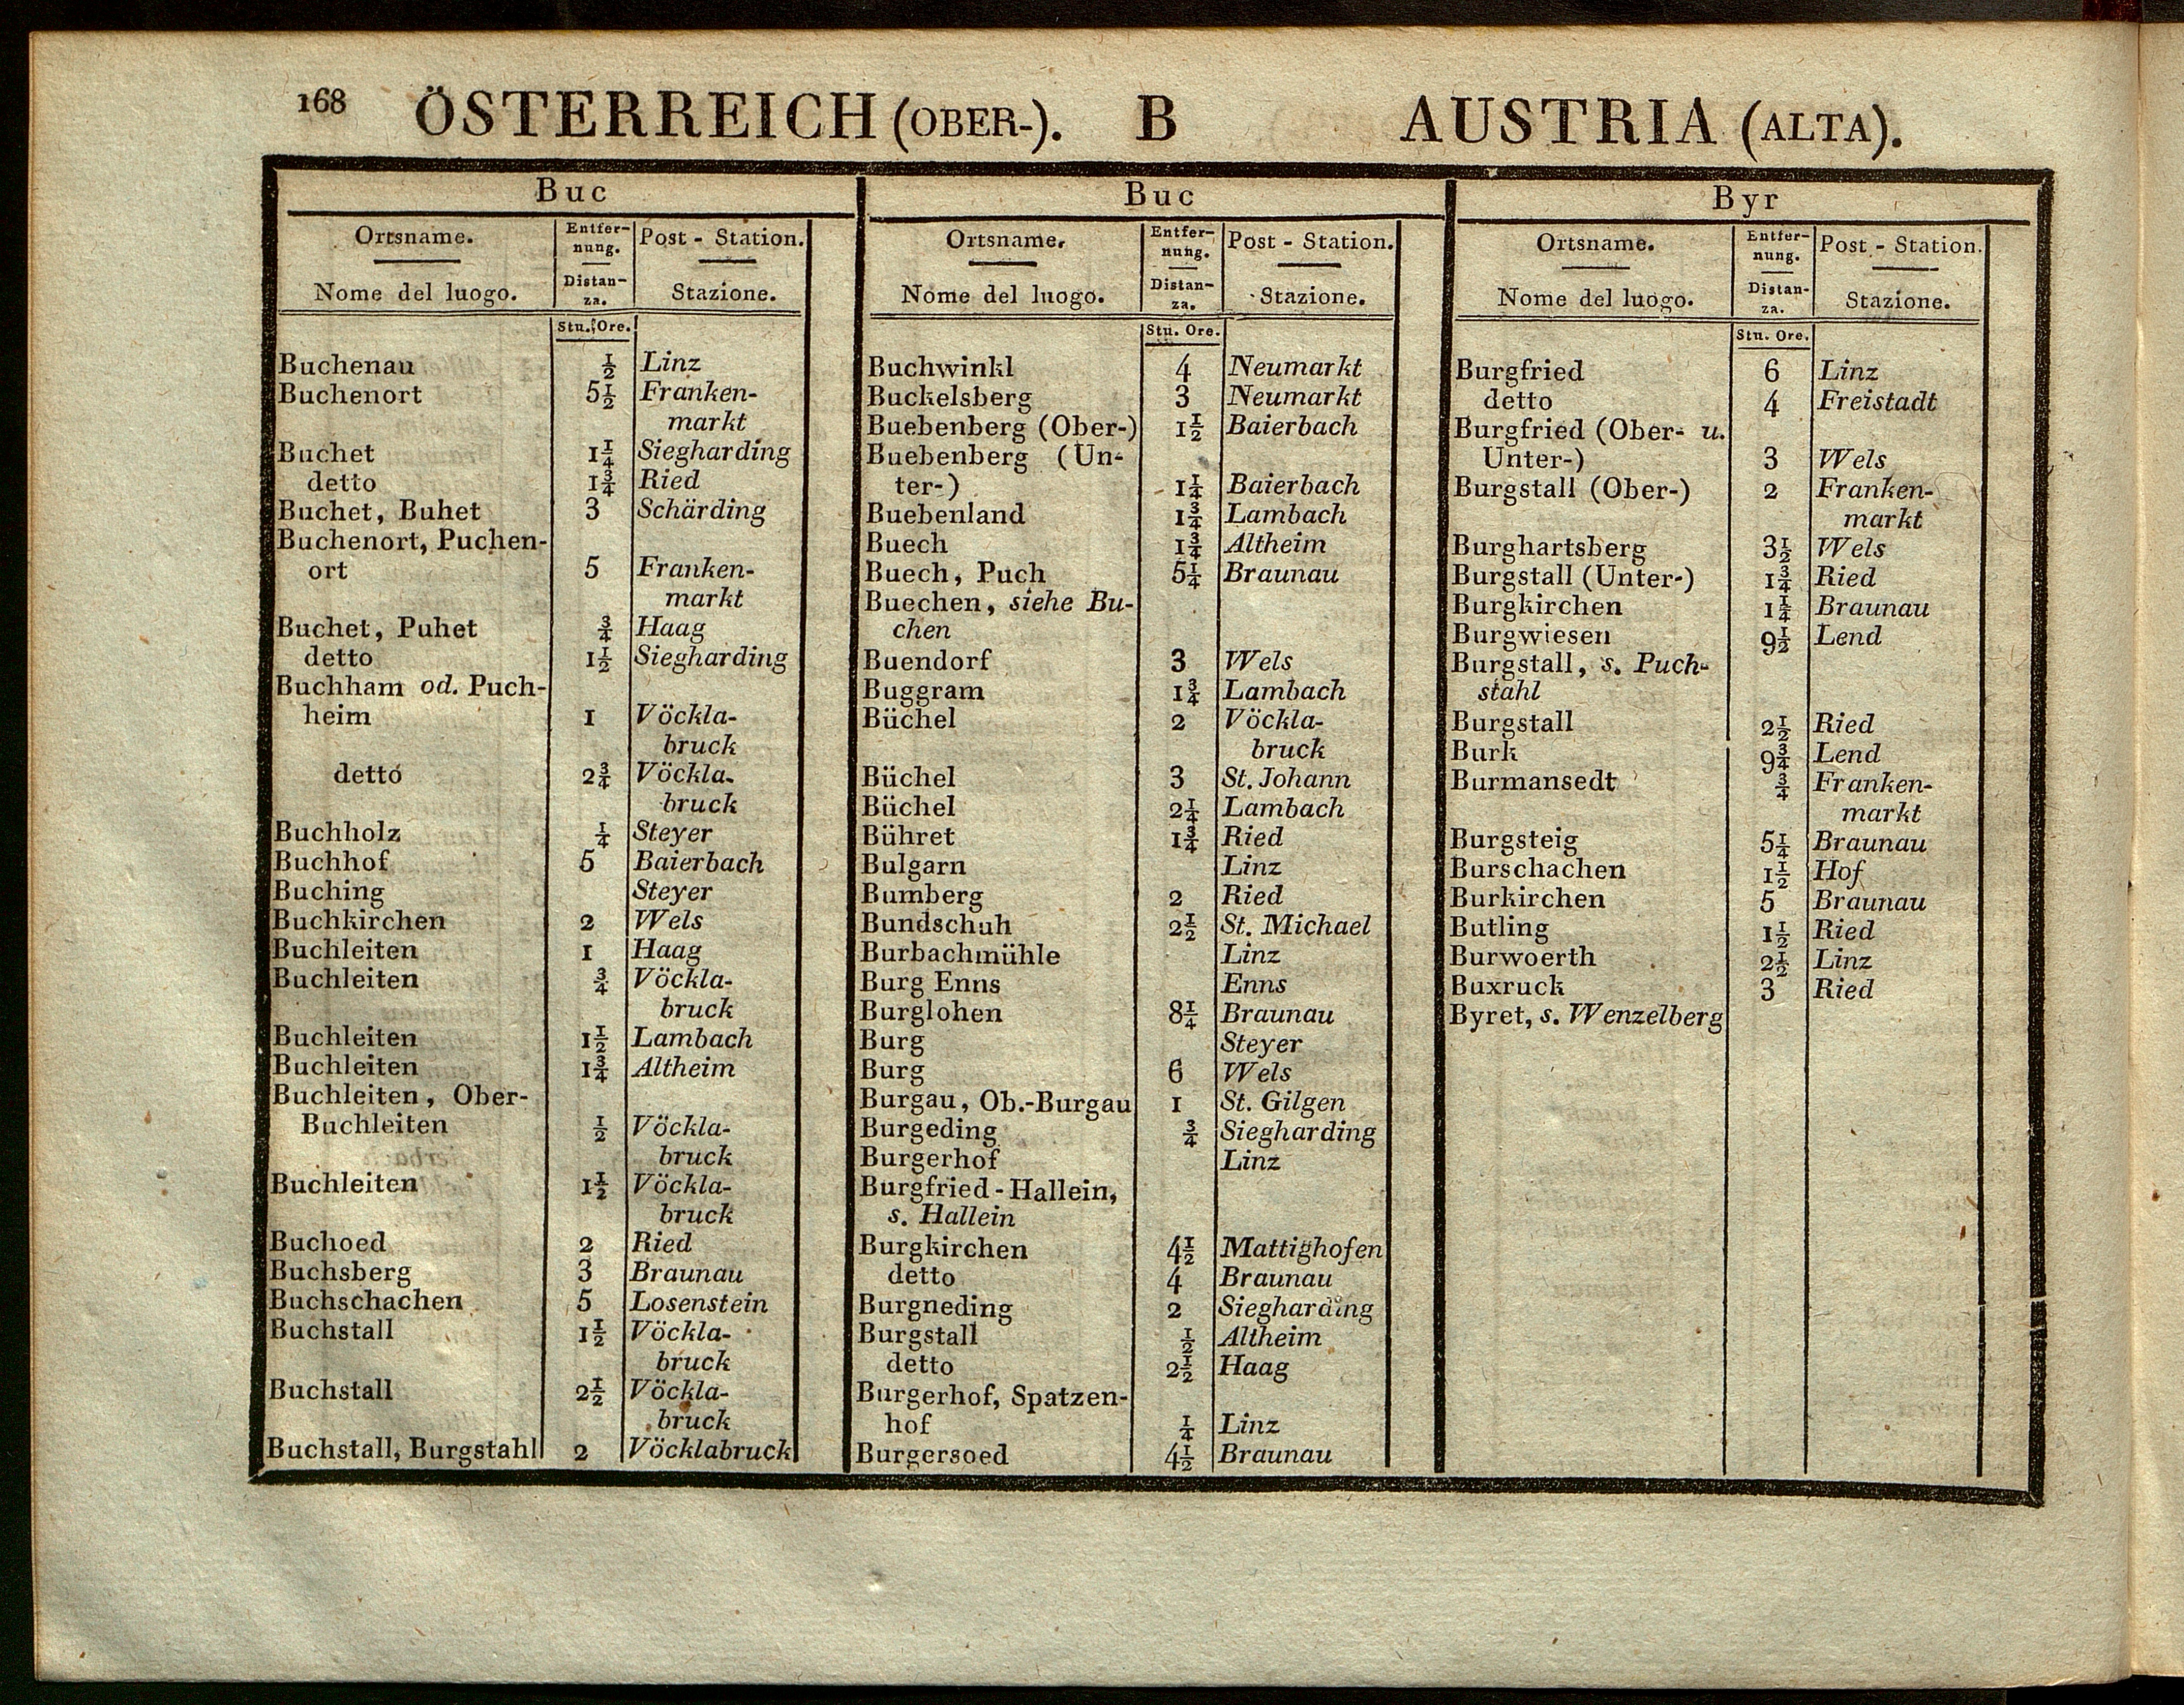 168 ÖSTERREICH (OBER-). B AUSTRIA (ALTA).
Buc
Ortsname. Entfer- Post - Station.
nung.
Nome del luogo. Distan- Stazione.
za.
Stu. Ore.
Buchenau ½ Linz
Buchenort 5½ Franken-
markt
Buchet 1¼ Siegharding
detto 1¾ Ried
Buchet, Buhet 3 Schärding
Buchenort, Puchen-
ort 5 Franken-
markt
Buchet, Puhet ¾ Haag
detto 1½ Siegharding
Buchham od. Puch-
heim 1 Vöckla-
bruck
detto 2¾ Vöckla-
bruck
Buchholz ¼ Steyer
Buchhof 5 Baierbach
Buching Steyer
Buchkirchen 2 Wels
Buchleiten 1 Haag
Buchleiten ¾ Vöckla-
bruck
Buchleiten 1½ Lambach
Buchleiten 1¾ Altheim
Buchleiten, Ober-
Buchleiten ½ Vöckla-
bruck
Buchleiten 1½ Vöckla-
bruck
Buchoed 2 Ried
Buchsberg 3 Braunau
Buchschachen 5 Losenstein
Buchstall 1½ Vöckla-
bruck
Buchstall 2½ Vöckla-
bruck
Buchstall, Burgstahl 2 Vöcklabruck
Buc
Ortsname. Entfer- Post - Station.
nung.
Nome del luogo. Distan- Stazione.
za.
Stu. Ore.
Buchwinkl 4 Neumarkt
Buckelsberg 3 Neumarkt
Buebenberg (Ober-) 1½ Baierbach
Buebenberg (Un-
ter-) 1¼ Baierbach
Buebenland 1¾ Lambach
Buech 1¾ Altheim
Buech, Puch 5¼ Braunau
Buechen, siehe Bu-
chen
Buendorf 3 Wels
Buggram 1¾ Lambach
Büchel 2 Vöckla-
bruck
Büchel 3 St. Johann
Büchel 2¼ Lambach
Bühret 1¾ Ried
Bulgarn Linz
Bumberg 2 Ried
Bundschuh 2½ St. Michael
Burbachmühle Linz
Burg Enns Enns
Burglohen 8¼ Braunau
Burg Steyer
Burg 6 Wels
Burgau, Ob.-Burgau 1 St. Gilgen
Burgeding ¾ Siegharding
Burgerhof Linz
Burgfried-Hallein,
s. Hallein
Burgkirchen 4½ Mattighofen
detto 4 Braunau
Burgneding 2 Siegharding
Burgstall ½ Altheim
detto 2½ Haag
Burgerhof, Spatzen-
hof ¼ Linz
Burgersoed 4½ Braunau
Byr
Ortsname. Entfer- Post - Station.
nung.
Nome del luogo. Distan- Stazione.
za.
Stu. Ore.
Burgfried 6 Linz
detto 4 Freistadt
Burgfried (Ober- u.
Unter-) 3 Wels
Burgstall (Ober-) 2 Franken-
markt
Burghartsberg 3½ Wels
Burgstall (Unter-) 1¾ Ried
Burgkirchen 1¼ Braunau
Burgwiesen 9½ Lend
Burgstall, s. Puch-
stahl
Burgstall 2½ Ried
Burk 9¾ Lend
Burmansedt ¾ Franken-
markt
Burgsteig 5¼ Braunau
Burschachen 1½ Hof
Burkirchen 5 Braunau
Butling 1½ Ried
Burwoerth 2½ Linz
Buxruck 3 Ried
Byret, s. Wenzelberg